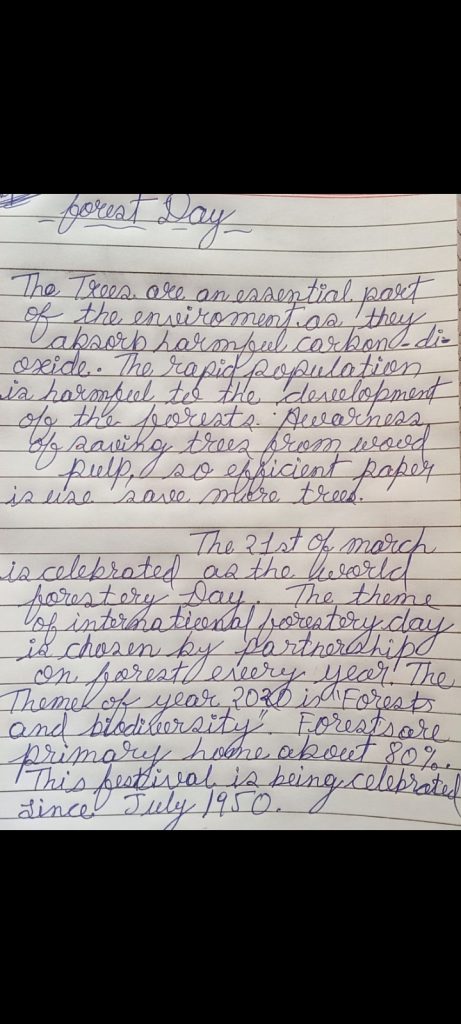 forest Day
The Trees are an essential part
of the enviroment as they
absorb harmful carbon-di-
oxide. The rapid population
is harmful to the development
of the forests. Awarness
of saving trees from wood
pulp, so efficient paper
is use save more trees.
The 21st of march
is celebrated as the world
forestery Day. The theme
of international forestery day
is chosen by partnership
on forest every year. The
Theme of year 2020 is "Forests
and biodiversity". Forests are
primary home about 80%.
This festival is being celebrated
since July 1950.